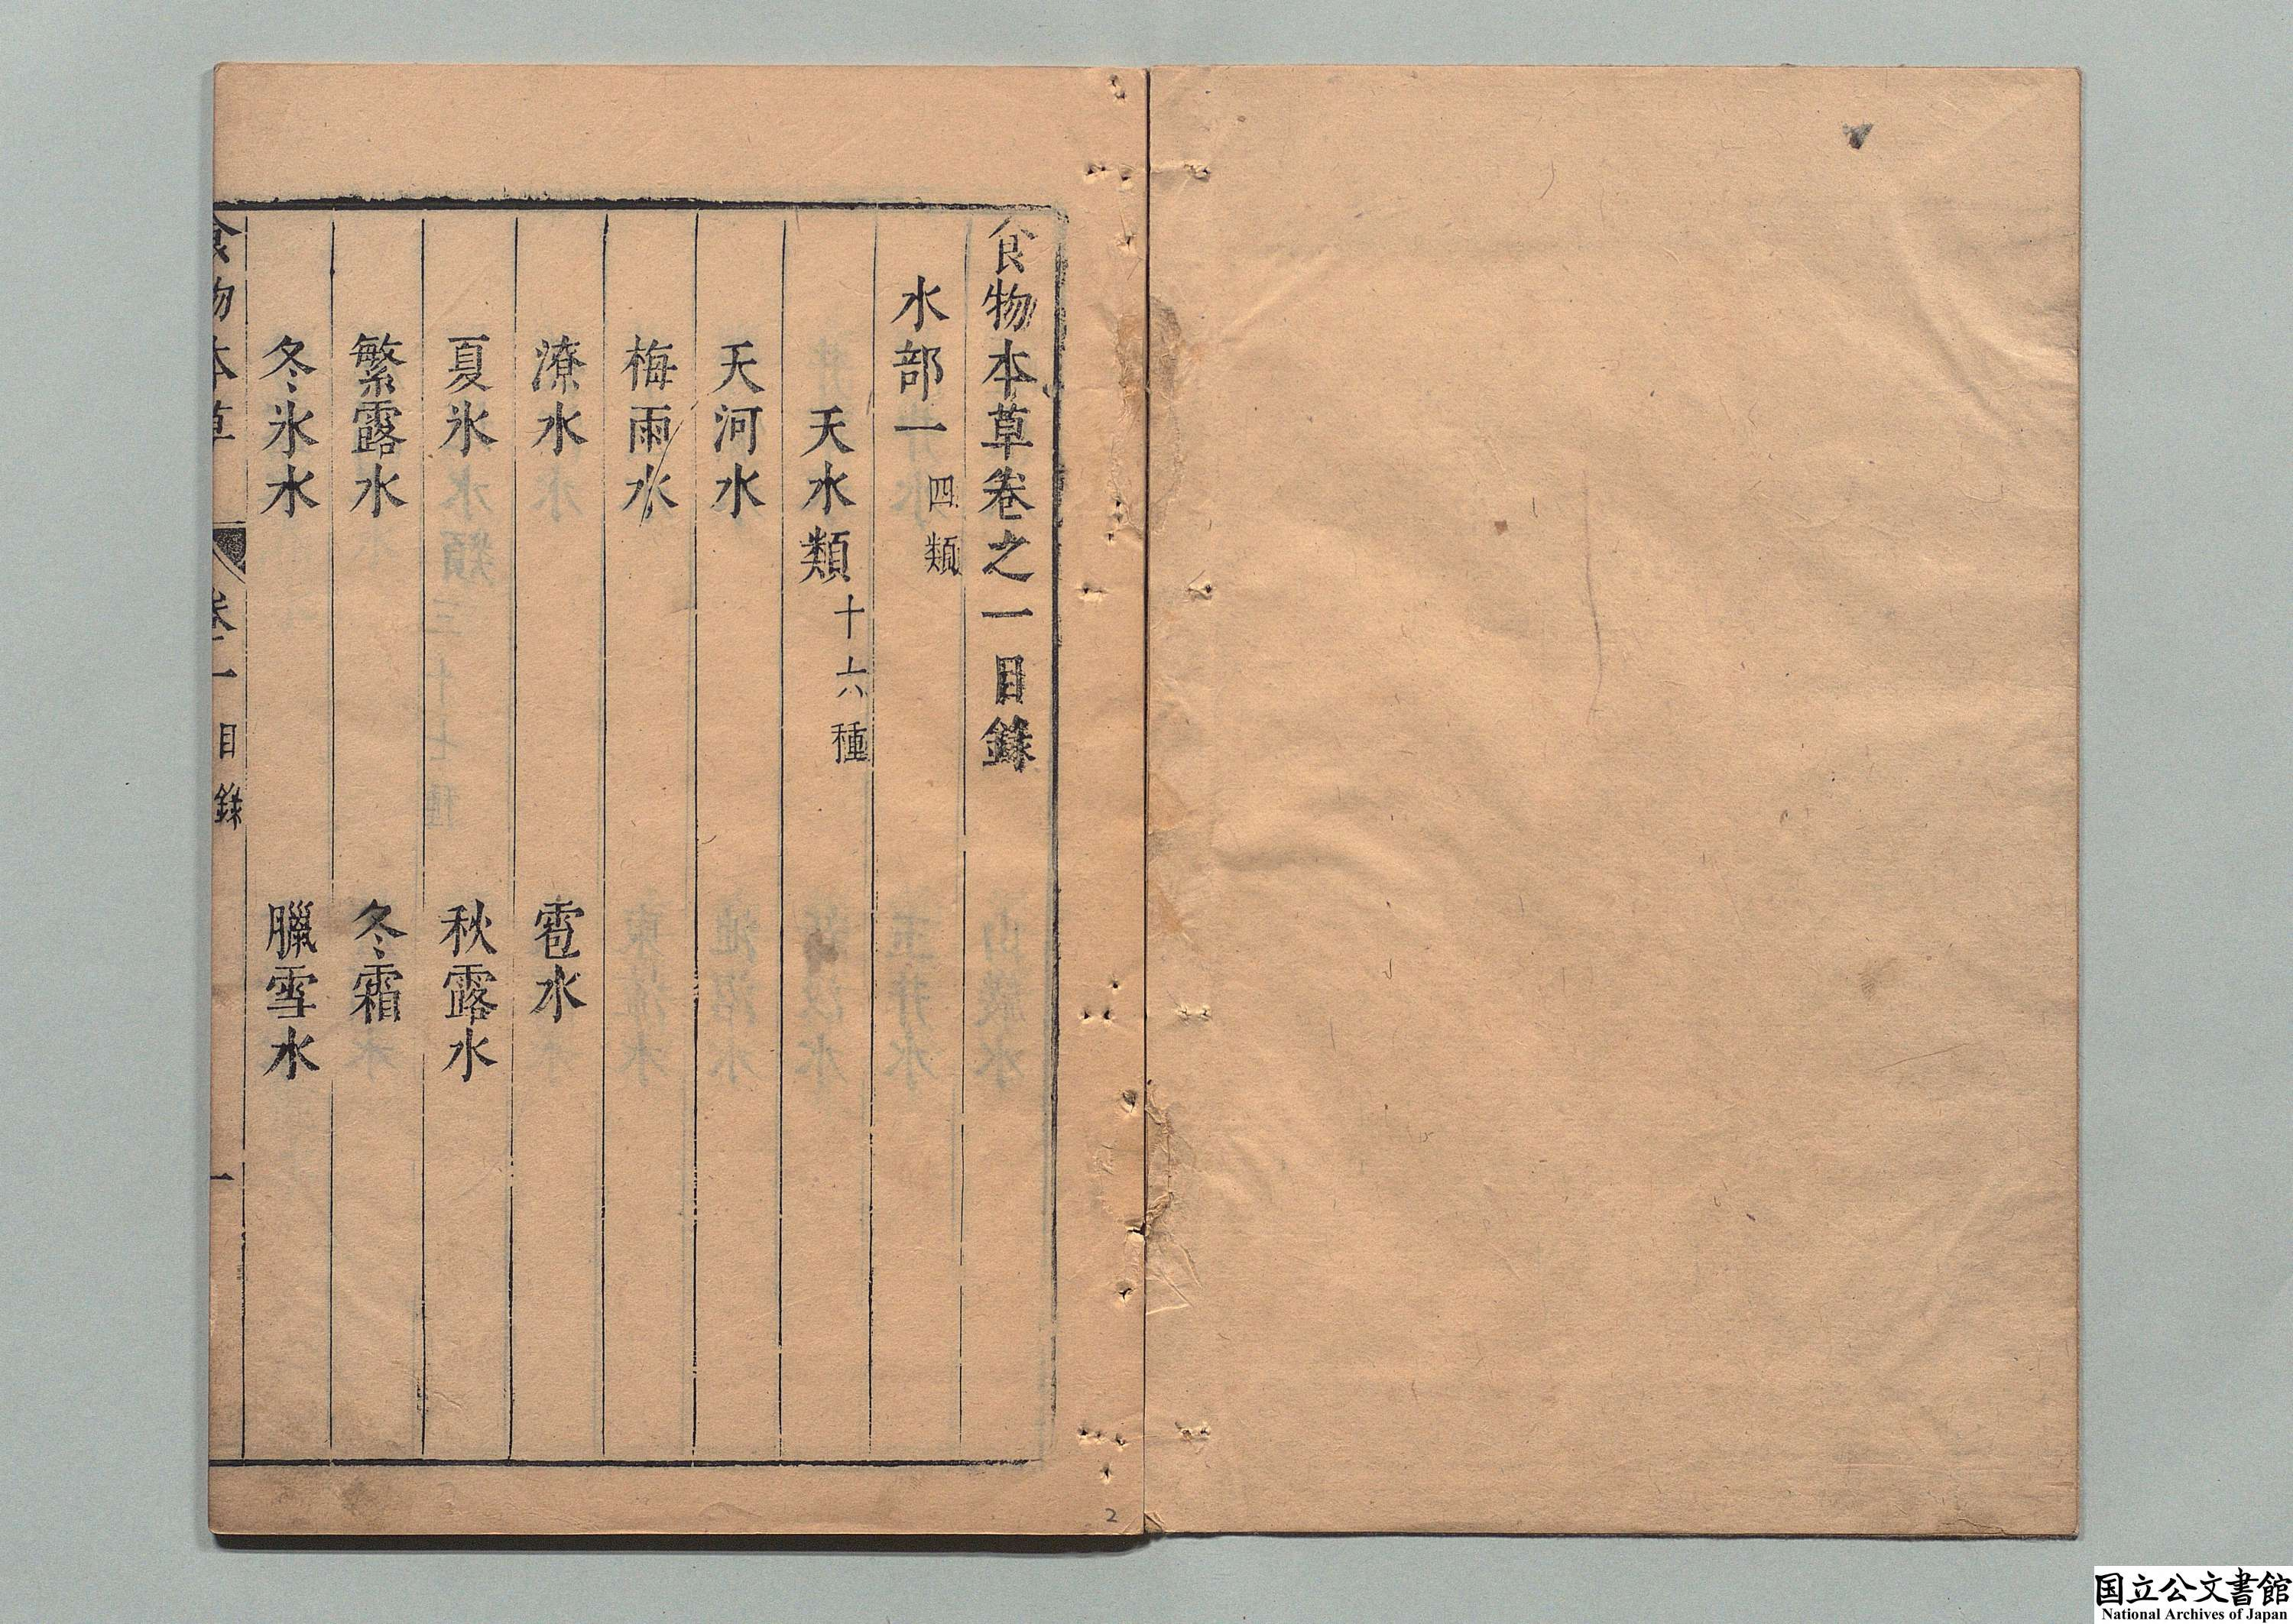 食物本草卷之一目錄
水部一 四類
天水類 十六種
天河水
梅雨水
潦水 雹水
夏氷 秋露水
繁露水 冬霜
冬氷水 臘雪水
食物本草 卷一目錄 一
2
国立公文書館
National Archives of Japan